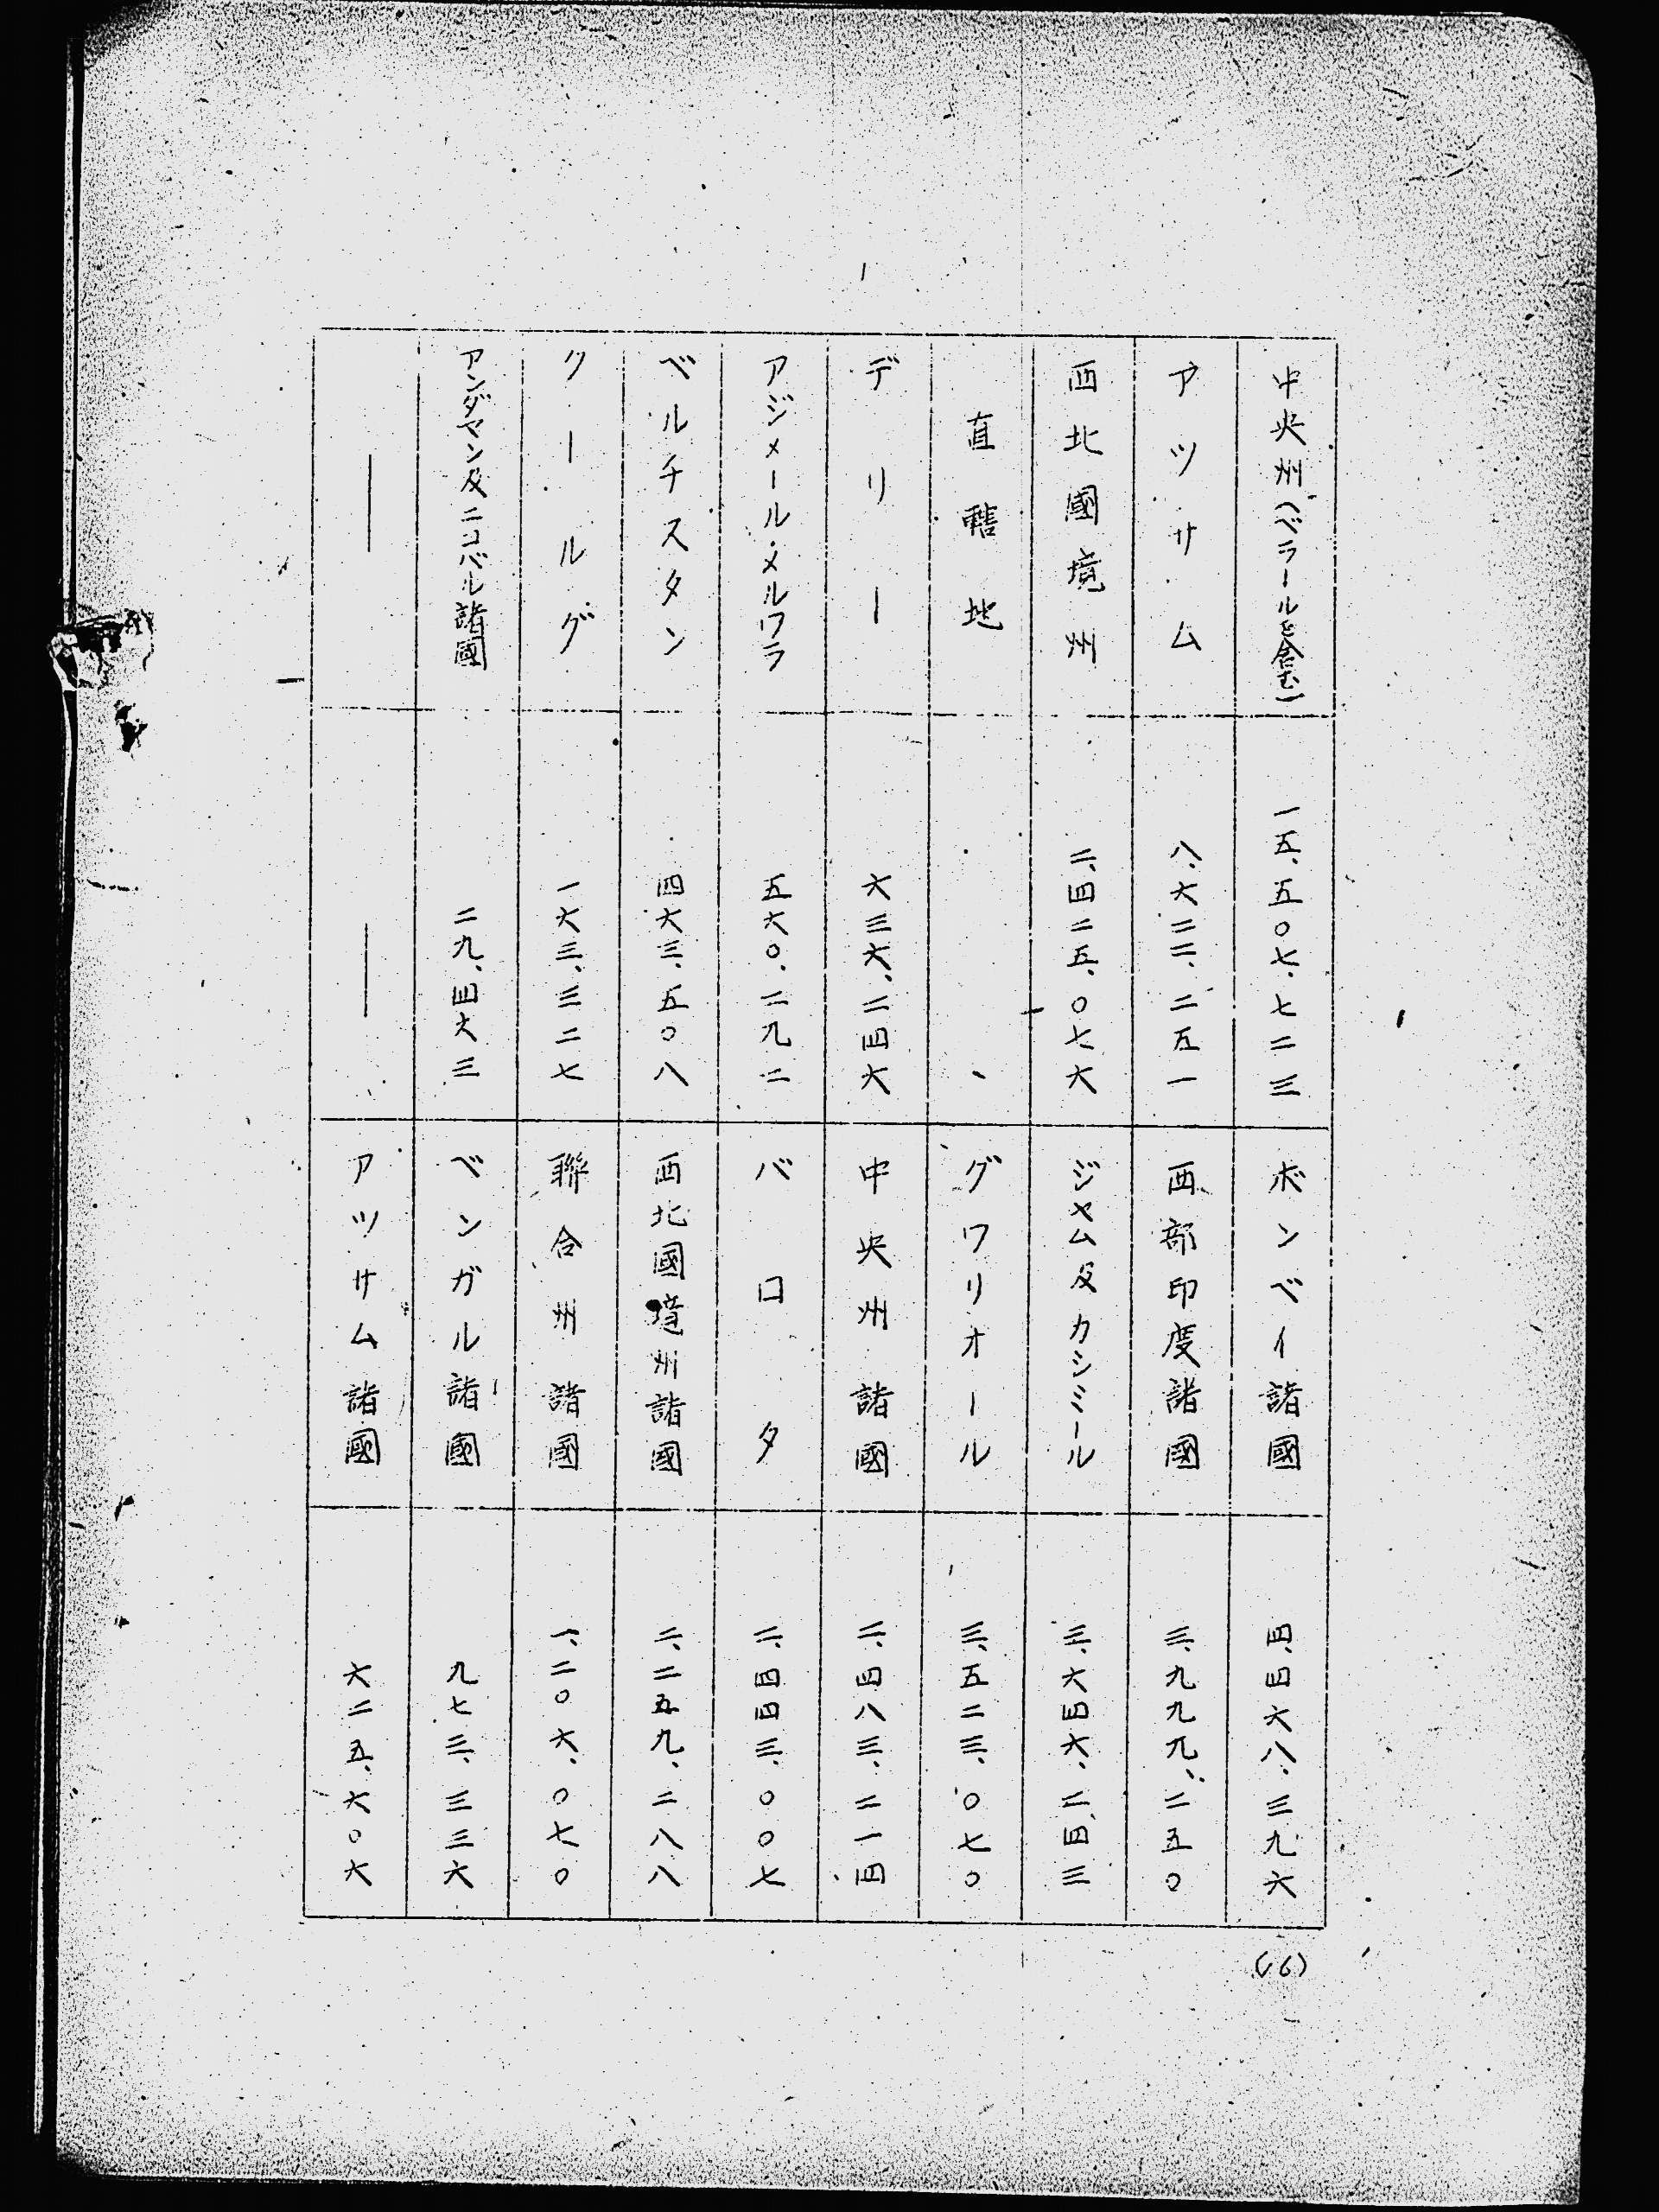 中央州（ベラールヲ含ム） 一五、五〇七、七二三 ボンベイ諸國 四、四六八、三九六
アツサム 八、六二二、二五一 西部印度諸國 三、九九九、二五〇
西北國境州 二、四二五、〇七六 ジヤム及カシミール 三、六四六、二四三
直轄地 グワリオール 三、五二三、〇七〇
デリー 六三六、二四六 中央州諸國 二、四八三、二一四
アジメール・メルワラ 五六〇、二九二 バロタ 二、四四三、〇〇七
ベルチスタン 四六三、五〇八 西北國境州諸國 二、二五九、二八八
クールグ 一六三、三二七 聯合州諸國 一、二〇六、〇七〇
アンダマン及ニコバル諸國 二九、四六三 ベンガル諸國 九七三、三三六
—— —— アツサム諸國 六二五、六〇六
(16)